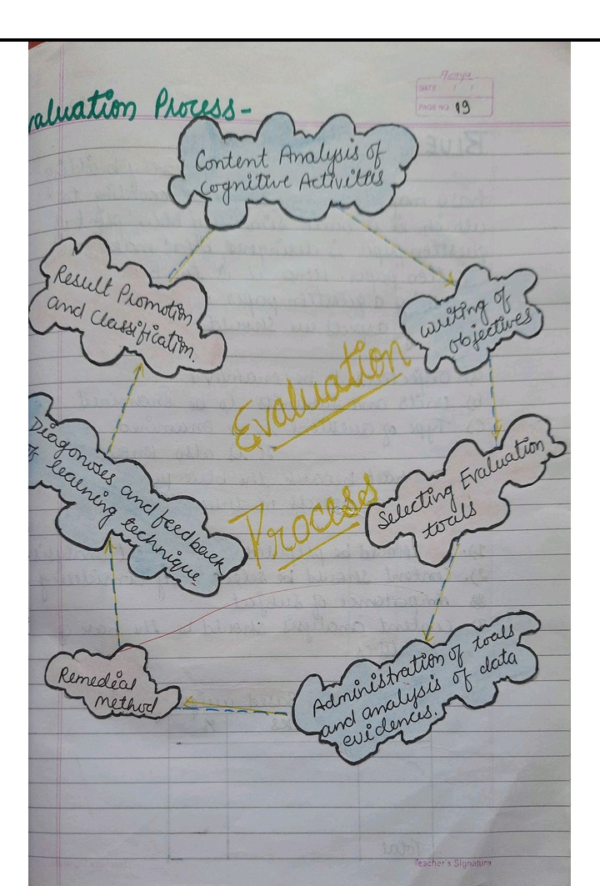 valuation Process-
DATE / /
PAGE NO. 19
Content Analysis of
Cognitive Activities
Writing of
objectives
Selecting Evaluation
toals
Administration of toals
and analysis of data
evidences.
Remedial
method
Diagonoses and feedback
of learning technique
Result Promotion
and Classification.
Evaluation
Process
Teacher's Signature